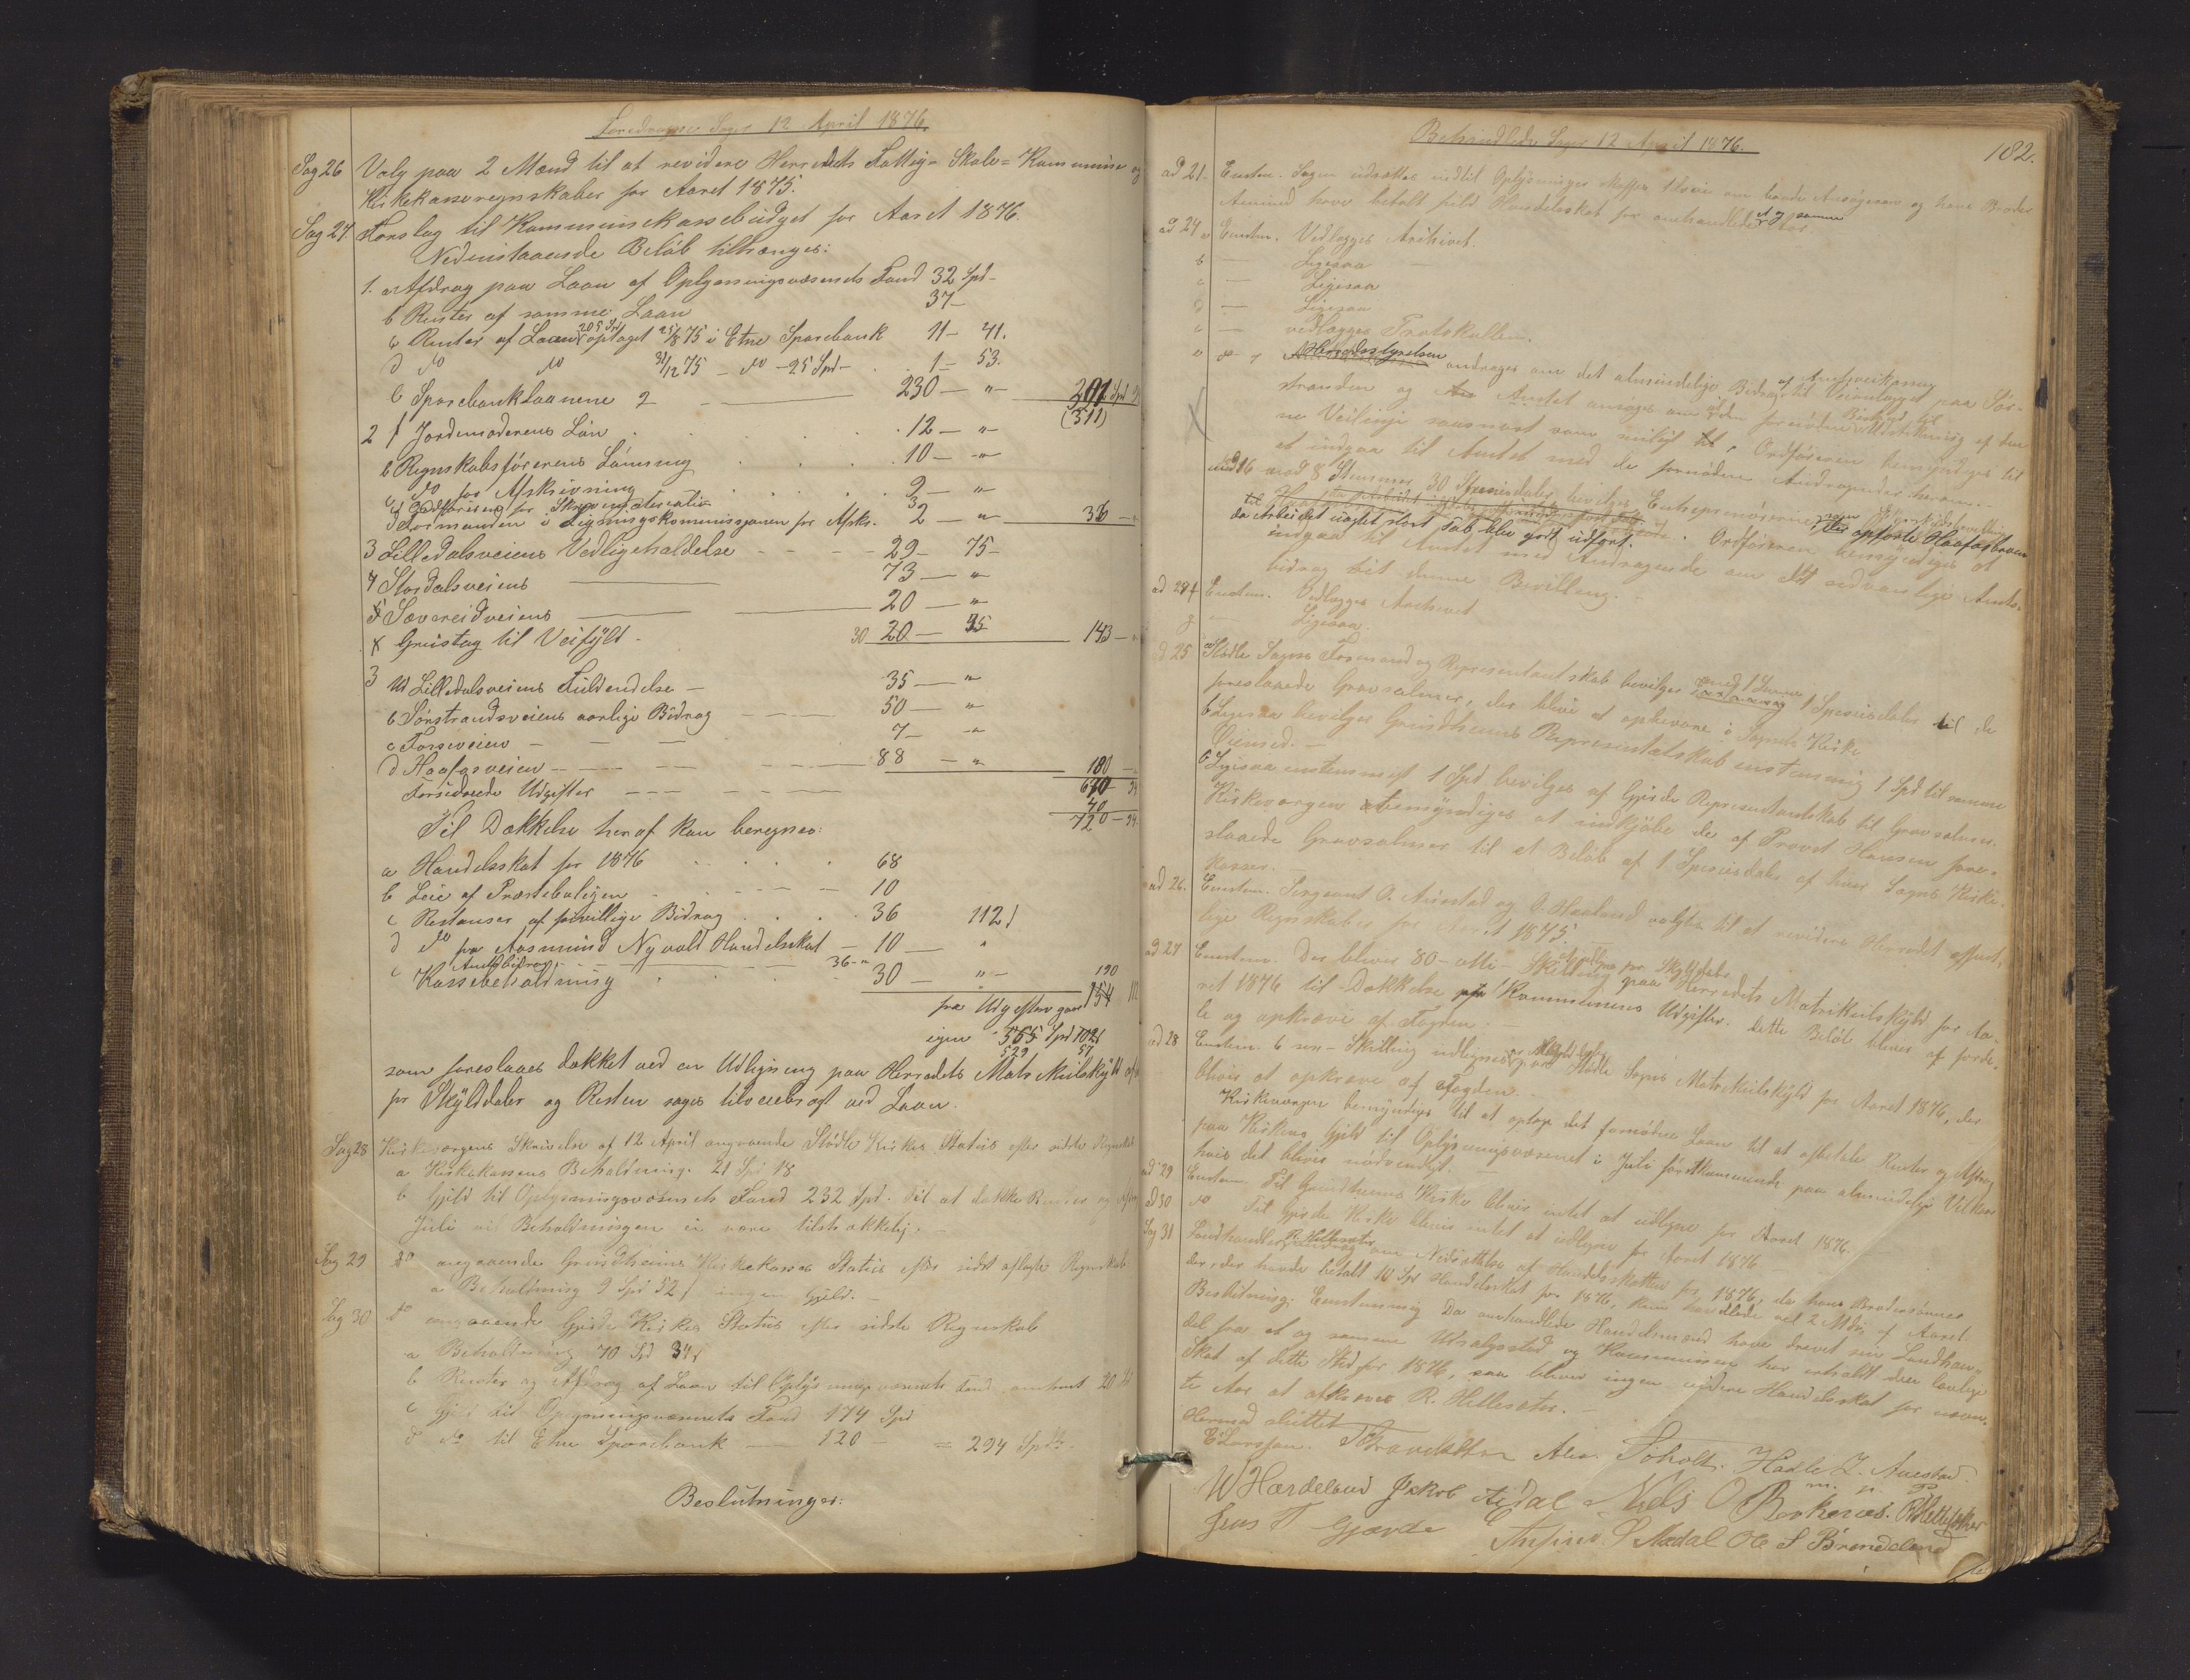 Foredragne Sager 12 April 1876.
Sag 26 Valg paa 2 Mænd til at revidere Herredets Fattig- Skole- Kommune og
Kirkekasseregnskaber for Aaret 1875.
Sag 27. Forslag til Kommunekassebudget for Aaret 1876.
Nedenstaaende Beløb tiltrænges:
1. a Afdrag paa Laan af Oplysningsvæsenets Fond 32 Spd -
b Renter af samme Laan 37 -
c Renter af Laan 205 Spd optaget 25/8 75 i Etne Sparebank 11 - 41.
d do do 31/12 75 - do - 25 Spd - 1 - 53.
e Sparebanklaanene 230 - " -
(311)
2 Jordemoderens Løn 12 - "
b Regnskabsførerens Lønning 10 - "
c do for Afskrivning 9 - "
Ordføreren for Skrivematerialier 3
d Formanden i Ligningskommissionen for Afskr. 2 - " 36 -
3 Lilledalsveiens Vedligeholdelse 29 - 75 -
4 Stordalsveiens 73 - "
5 Sævareidveiens 20 - "
Grustag til Veifyld 30 20 - 143 -
3 Lilledalsveiens Fuldendelse - 35 - "
b Sørstrandsveiens aarlige Bidrag 50 - "
c Fosseveien 7 - "
d Haafosveien 88 - " 180 -
Udgifter
40
720 - 94.
Til Dækkelse heraf kan beregnes:
a Handelsskat for 1876 68
b Leie af Præsteboligen 10
c Restanser af frivillige Bidrag 36 112
d do fra Aasmund Nyvold Handelsskat - 10 - "
Amtsbidrag 36 - "
e Kassebeholdning 30 - " - 190
fra Udgifterne gaar 154
igen 565 Spd
529 57
som foreslaaes dækket ved en Udligning paa Herredets Matrikulskyld af
pr Skylddaler og Resten søges tilveiebragt ved Laan.
Sag 28 Kirkevergens Skrivelse af 12 April angaaende Stødle Kirkes Status efter sidste Regnskab
a Kirkekassens Beholdning. 21 Spd 18
b Gjæld til Oplysningsvæsenets Fond 232 Spd. Til at dække Renter og
Juli vil Beholdningen ei være tilstrækkelig. -
Sag 29 do angaaende Grindheims Kirkekasses Status efter sidst aflagte Regnskab
a Beholdning 9 Spd 52 ingen Gjæld. -
Sag 30 do angaaende Gjerde Kirkes Status efter sidste Regnskab
a Beholdning 70 Spd
b Renter og Afdrag af Laan til Oplysningsvæsenets Fond omtrent 20
c Gjæld til Oplysningsvæsenets Fond 174 Spd
d do til Etne Sparebank - 120 - = 294 Spd.
Beslutninger:
Behandlede Sager 12 April 1876. 182.
ad 21. Enstem. Sagen udsættes indtil Oplysninger skaffes tilveie om baade Ansøgeren og hans Broder
Aamund have betalt fuld Handelsskat for omhandlede samme
ad 24 a Enstem. Vedlægges Arkivet.
b - Ligesaa -
c - Ligesaa
d - Ligesaa
e - vedlægges Protokollen.
Herredsstyrelsen andrager om det almindelige Bidrag af Amtsveikassen til Veianlægget paa Sør-
stranden og Amtet ansøges om Udstikning af den-
ne Veilinje saasnart som muligt. Ordføreren bemyndiges til
at indgaa til Amtet med de fornødne Andragender herom.
mod 8 Stemmer 30 Spesiedaler bevilges Entreprenørerne opførte Haafosbroen
da Arbeidet uagtet stort Tab blev godt udført. Ordføreren bemyndiges at
indgaa til Amtet med Andragende om det sedvanlige Amts-
bidrag til denne Bevilling. -
ad 24 f Enstem. Vedlægges Archivet
g - Ligesaa.
ad 25 a Stødle Sogns Formand og Representantskab bevilger 1 Spesiedaler til de
foreslaaede Gravsalmer, der blive at opbevare i Sognets Kirke
b Ligesaa bevilger Grindheims Representantskab enstemmig 1 Spd til samme
Øiemed. -
c Ligesaa enstemmigt 1 Spd bevilges af Gjerde Representantskab til Gravsalmer.
Kirkevergen bemyndiges at indkjøbe de af Provst Hansen fore-
slaaede Gravsalmer til et Beløb af 1 Spesiedaler af hver Sogns Kirke-
kasser.
ad 26. Enstem. Sergeant O. Aurestad og O. Haaland valgtes til at revidere Herredets offent-
lige Regnskaber for Aaret 1875.
ad 27 Enstem. Der bliver 80 - otti - Skilling pr Skylddaler paa Herredets Matrikulskyld for Aa-
ret 1876 til Dækkelse Kommunens Udgifter. Dette Beløb bliver at forde-
le og opkræve af Fogden.
ad 28 Enstem. 6 sex - Skilling udlignes paa Stødle Sogns Matrikulskyld for Aaret 1876, der
bliver at opkræve af Fogden. -
Kirkevergen bemyndiges til at optage det fornødne Laan til at afbetale Renter og Afdrag
paa Kirkens Gjæld til Oplysningsvæsenet i Juli førstkommende paa almindelige Vilkaar
hvis det bliver nødvendigt. -
ad 29 Enstem. Til Grindheims Kirke bliver intet at udligne for Aaret 1876. -
ad 30 do Til Gjerde Kirke bliver intet at udligne for Aaret 1876
Sag 31 Landhandler R. Hellesøter om Nedsættelse af Handelsskatten for 1876, da hans Brodersønner
der, der havde betalt 10 Spd Handelsskat for 1876, kun handlede vel 2 Mdr. af Aaret
Beslutning: Enstemmig Da omhandlede Handelsmænd have drevet sin Landhan-
del fra et og samme Udsalgssted og Kommunen har erholdt den lovlige
Skat af dette Sted for 1876, saa bliver ingen videre Handelsskat for nævn-
te Aar at afkræves R. Hellesøter. -
Hermed sluttet
E Larssen. Tholt. Hadle L. Auestad.
W Hardeland Jakob Nils O
Jens T Gjærde Ole S Brendeland